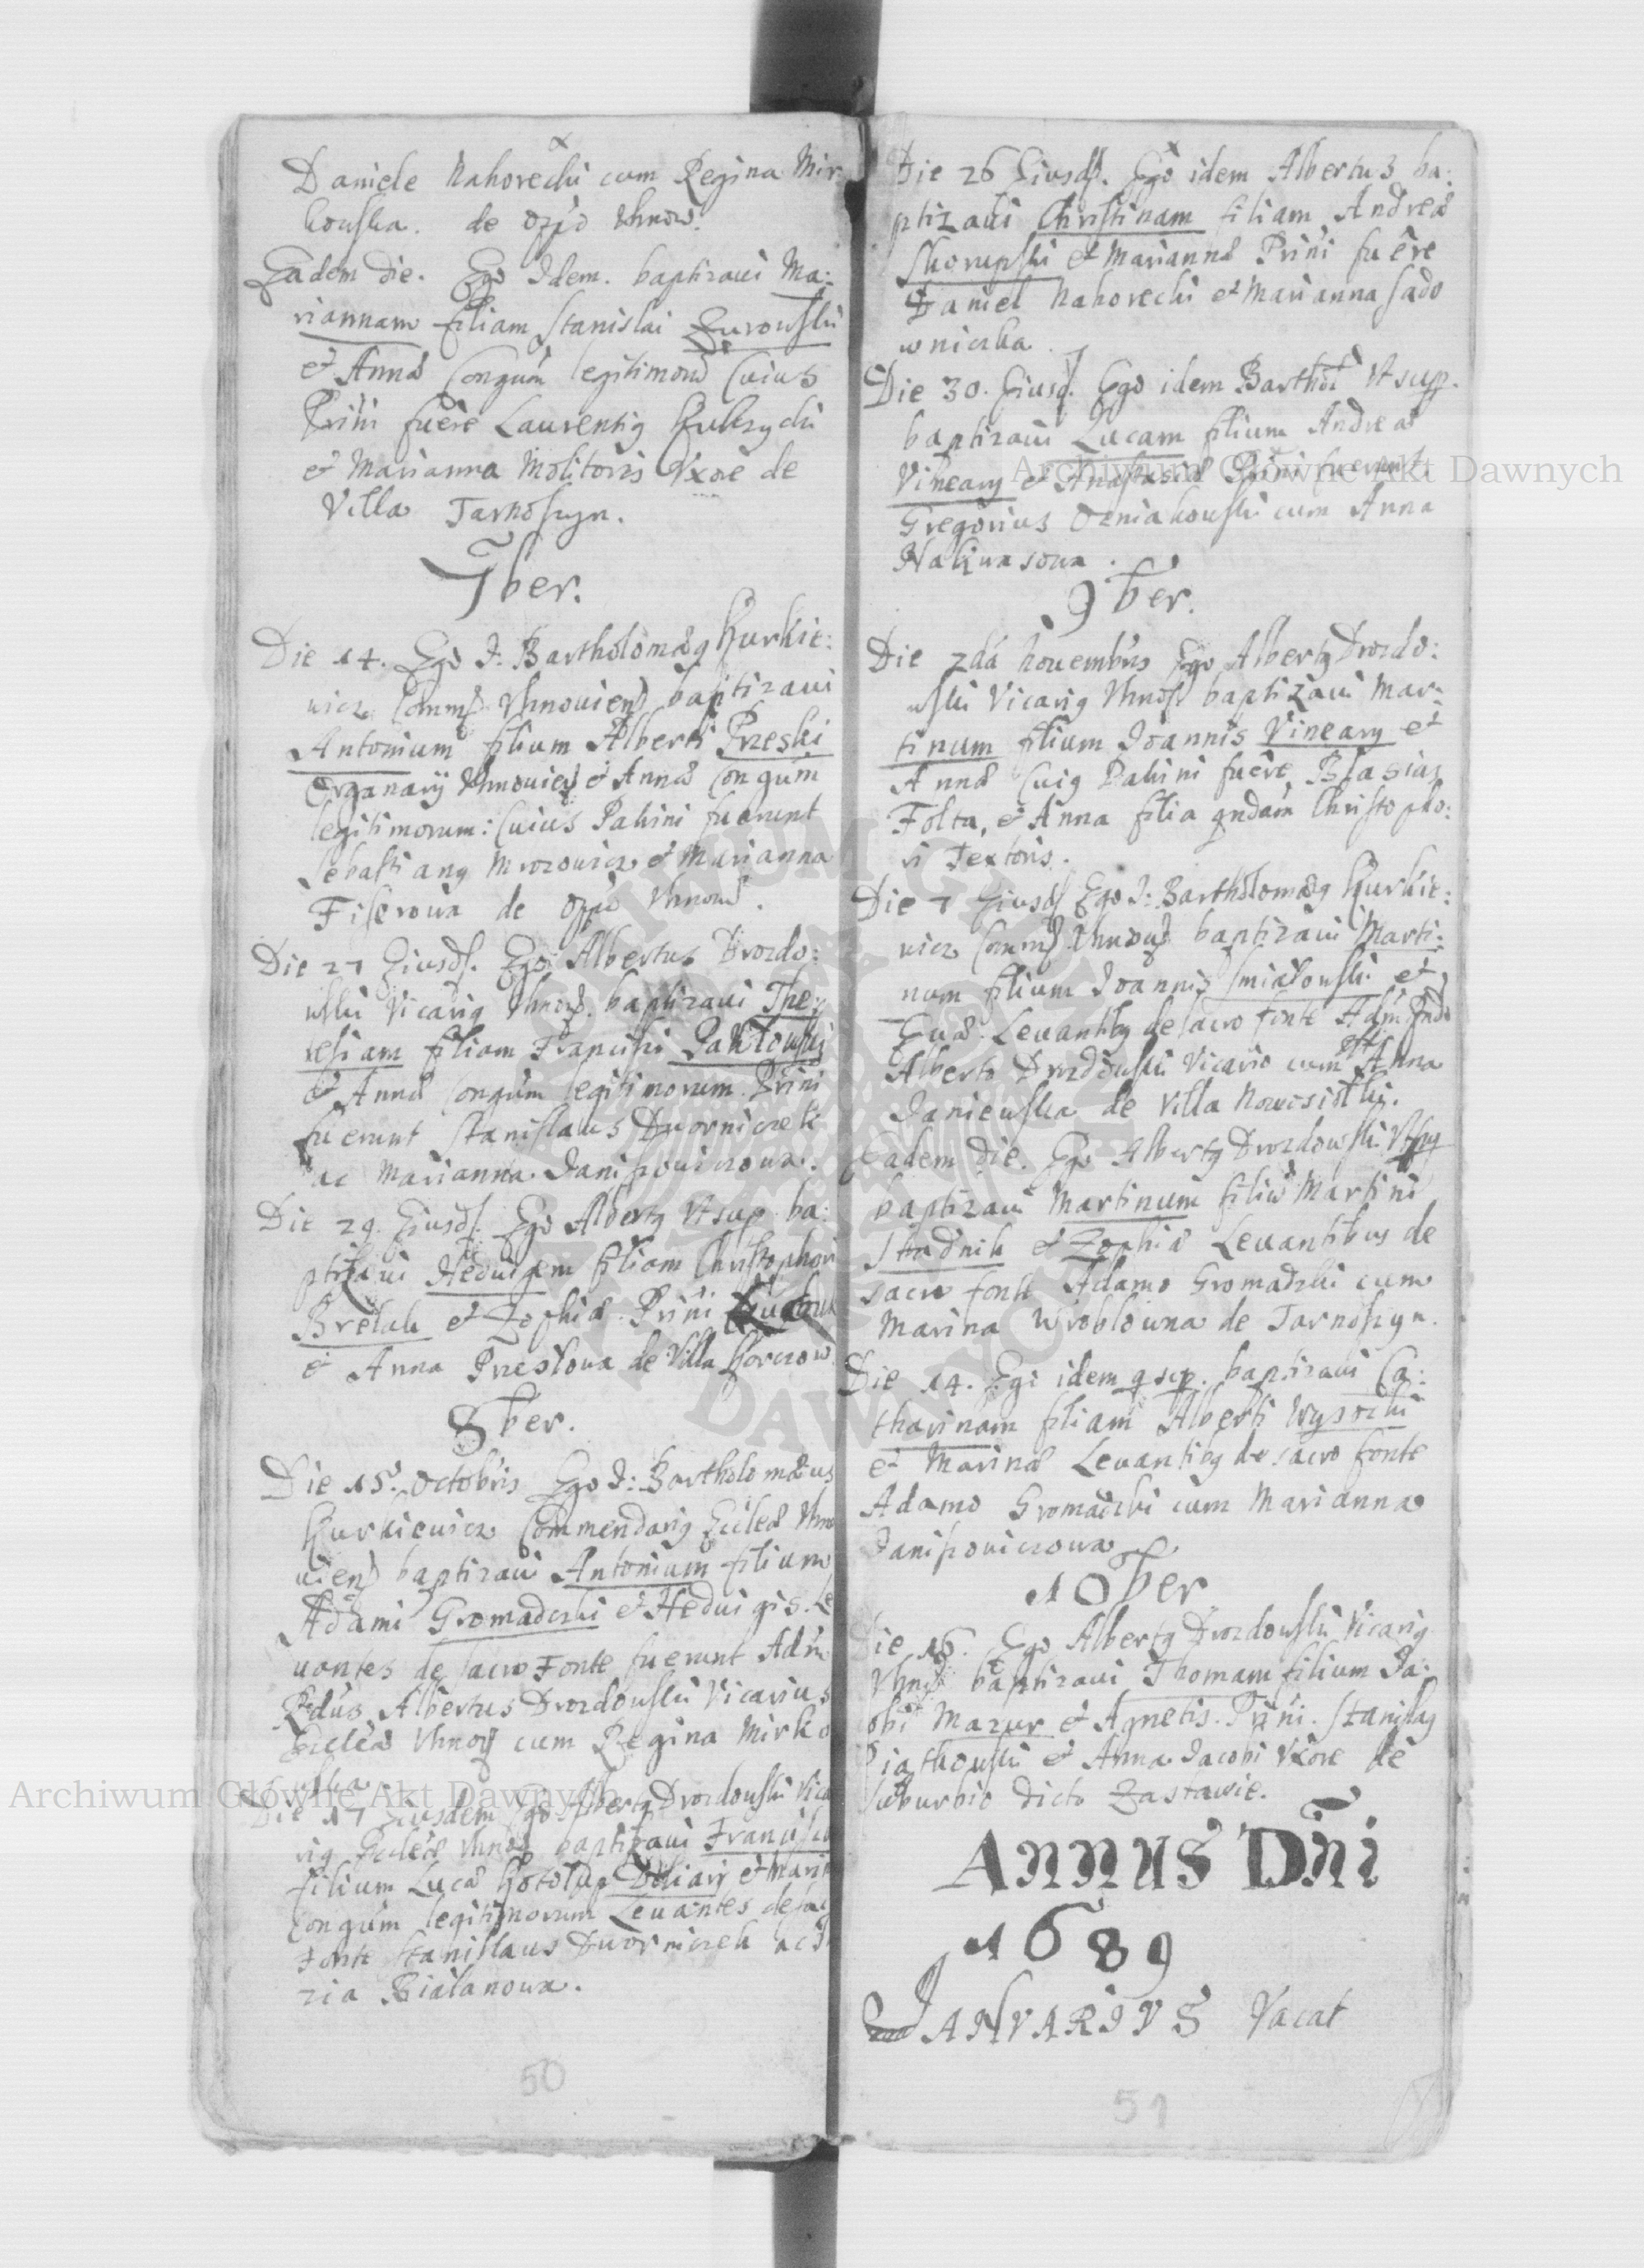 Daniele Nahorecki cum Regina Mir:
kouska. de Oppo Uhnow.
Eadem die. Ego Idem. baptizaui Ma:
riannam filiam Stanislai Zurouski
et Annæ Congum legitimorum Cuius
Prini fuere Laurentius
et Marianna Molitoris Uxore de
Villa Tarnoszyn.
7ber.
Die 14. Ego J: Bartholomæus Kurkie:
wicz Comms Uhnouiens baptizaui
Antonium filium Alberti Przeski
Organarij Uhnouiens et Annæ Congum
legitimorum: Cuius Patrini fuerunt
Sebastianus Mrozowicz et Marianna
Fiserowa de Oppo Uhnow.
Die 27 Eiusd. Ego Albertus Drozdo:
wski Vicarius Uhnow. baptizaui The:
resiam filiam Francisci Pawlowski
et Annæ Congum legitimorum. Prini
fuerunt Stanislaus Dworniczek
ac Marianna Janiszouiczowa.
Die 29. Eiusd. Ego Albertus Ut sup. ba:
ptizaui Heduigem filiam Christophori
Bretak et Zophiæ. Prini
et Anna Przeslowa de Villa Korczow
8ber.
Die 15. Octobris Ego J: Bartholomæus
Kurkiewicz Commendarius Eccleæ Uhno
uiens baptizaui Antonium filium
Adami Gromadzki et Heduigis. Le
uantes de sacro Fonte fuerunt Adm
Rdus Albertus Drozdouski Vicarius
Eccleæ Uhnow cum Regina Mirko
wska
Die 17 Eiusdem Ego Albertus Drozdouski Vica
rius Eccleæ Uhnow baptizaui Franciscu
filium Lucæ Doliarij et Mari
Congum legitimorum Leuantes de sac
Fonte Stanislaus Dworniczek ac
ria Bialanowa.
50
Die 26 Eiusd. Ego idem Albertus ba:
ptizaui Christinam filiam Andreæ
Skorupski et Mariannæ Prini fuere
Daniel Nahorecki et Marianna Sado
wniczka.
Die 30. Eiusd. Ego idem Barthol Ut sup.
baptizaui Lucam filium Andreæ
Vineary et Anastasiæ Prini fuerunt
Gregorius Ozniakouski cum Anna
Nakwasowa.
9ber.
Die 2da Nouembris Ego Albertus Drozdo:
wski Vicarius Uhnow baptizaui Mar:
tinum filium Joannis Vineary et
Annæ Cuius Patrini fuere Blasius
Folta, et Anna filia qndam Christopho:
ri Textoris.
Die 7 Eiusd Ego J: Bartholomæus Kurkie:
wicz Comms Uhnow baptizaui Marti:
num filium Joannis Smialouski et
Euæ. Leuantibus de sacro fonte Adm Rndo
Alberto Drozdouski Vicario cum Anna
Janieuska de Villa Nowesiolki.
Eadem die. Ego Albertus Drozdowski Ut sup
baptizaui Martinum filiu Martini
Stadnik et Zophiæ Leuantibus de
sacro fonte Adamo Gromadzki cum
Marina Wroblowna de Tarnoszyn.
Die 14. Ego idem q sup. baptizaui Ca:
tharinam filiam Alberti Wysocki
et Marinæ Leuantibus de sacro fonte
Adamo Gromadzki cum Marianna
Janiszouiczowa
10ber
Die 16. Ego Albertus Drozdowski Vicarius
Uhnow baptizaui Thomam filium Ja:
obi Mazur et Agnetis. Prini. Stanislaus
Piątkouski et Anna Jacobi Uxore de
suburbio dicto Zastawie.
ANNUS Dñi
1689
JANVARIVS Vacat
51
Archiwum Główne Akt Dawnych
Archiwum Główne Akt Dawnych